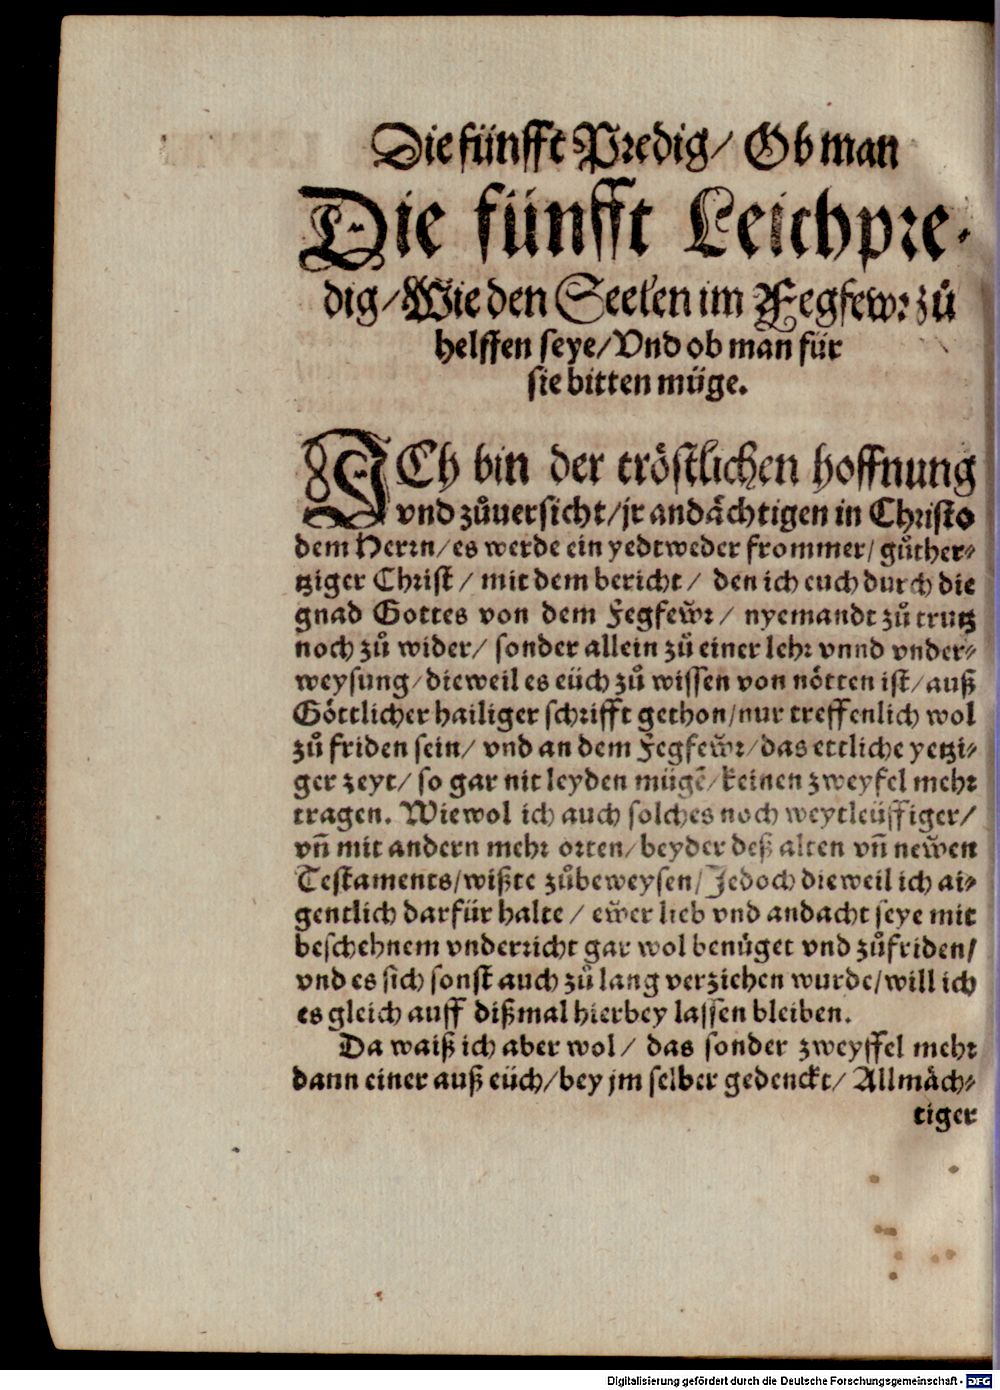 Die fünfft Predig/ Ob man
Die fünfft Leichpre-
dig/ Wie den Seelen im Fegfewr zů
helffen seye/ Vnd ob man für
sie bitten müge.
ICh bin der tröstlichen hoffnung
vnd zůuersicht/ jr andächtigen in Christo
dem Herrn/ es werde ein yedtweder frommer/ gůther-
tziger Christ/ mit dem bericht/ den ich euch durch die
gnad Gottes von dem Fegfeẅr/ nyemandt zů trutz
noch zů wider/ sonder allein zů einer lehr vnnd vnder-
weysung/ dieweil es eüch zů wissen von nötten ist/ auß
Göttlicher hailiger schrifft gethon/ nur treffenlich wol
zů friden sein/ vnd an dem Fegfeẅr/ das ettliche yetzi-
ger zeyt/ so gar nit leyden mügẽ/ keinen zweyfel mehr
tragen. Wiewol ich auch solches noch weytleüffiger/
vñ mit andern mehr orten/ beyder deß alten vñ neẅen
Testaments/ wißte zůbeweysen/ Jedoch dieweil ich ai-
gentlich darfür halte/ eẅer lieb vnd andacht seye mit
beschehnem vnderricht gar wol benüget vnd zůfriden/
vnd es sich sonst auch zů lang verziehen wurde/ will ich
es gleich auff dißmal hierbey lassen bleiben.
Da waiß ich aber wol/ das sonder zweyffel mehr
dann einer auß eüch/ bey jm selber gedenckt/ Allmäch-
tiger
Digitalisierung gefördert durch die Deutsche Forschungsgemeinschaft - DFG